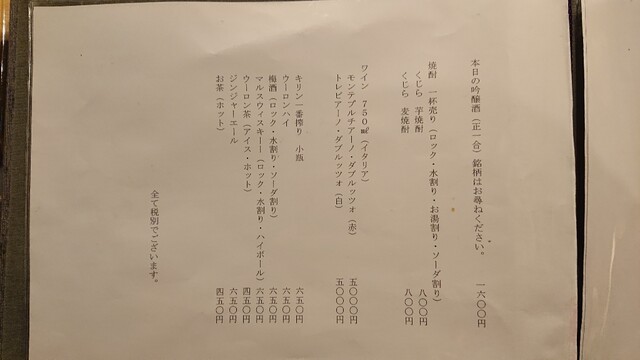 本日の吟醸酒（正一合）銘柄はお尋ねください。　一六〇〇円
焼酎　一杯売り（ロック・水割り・お湯割り・ソーダ割り）
くじら　芋焼酎　八〇〇円
くじら　麦焼酎　八〇〇円
ワイン　７５０㎖（イタリア）
モンテプルチアーノ・ダブルッツォ（赤）　五〇〇〇円
トレビアーノ・ダブルッツォ（白）　五〇〇〇円
キリン一番搾り　小瓶　六五〇円
ウーロンハイ　六五〇円
梅酒（ロック・水割り・ソーダ割り）　六五〇円
マルスウィスキー（ロック・水割り・ハイボール）　六五〇円
ウーロン茶（アイス・ホット）　四五〇円
ジンジャーエール　六五〇円
お茶（ホット）　四五〇円
全て税別でございます。